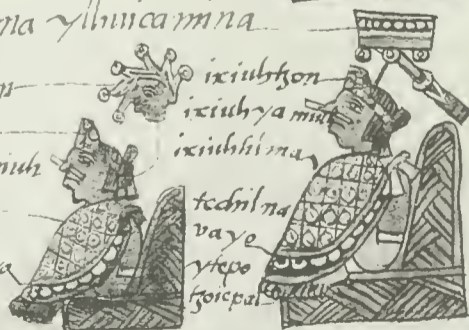 na ylhuicamina
ixiuhtzon
ixiuhyamiuh
miuh
ixiuhtilma
techilna
vayo
ytepo
tzoicpal